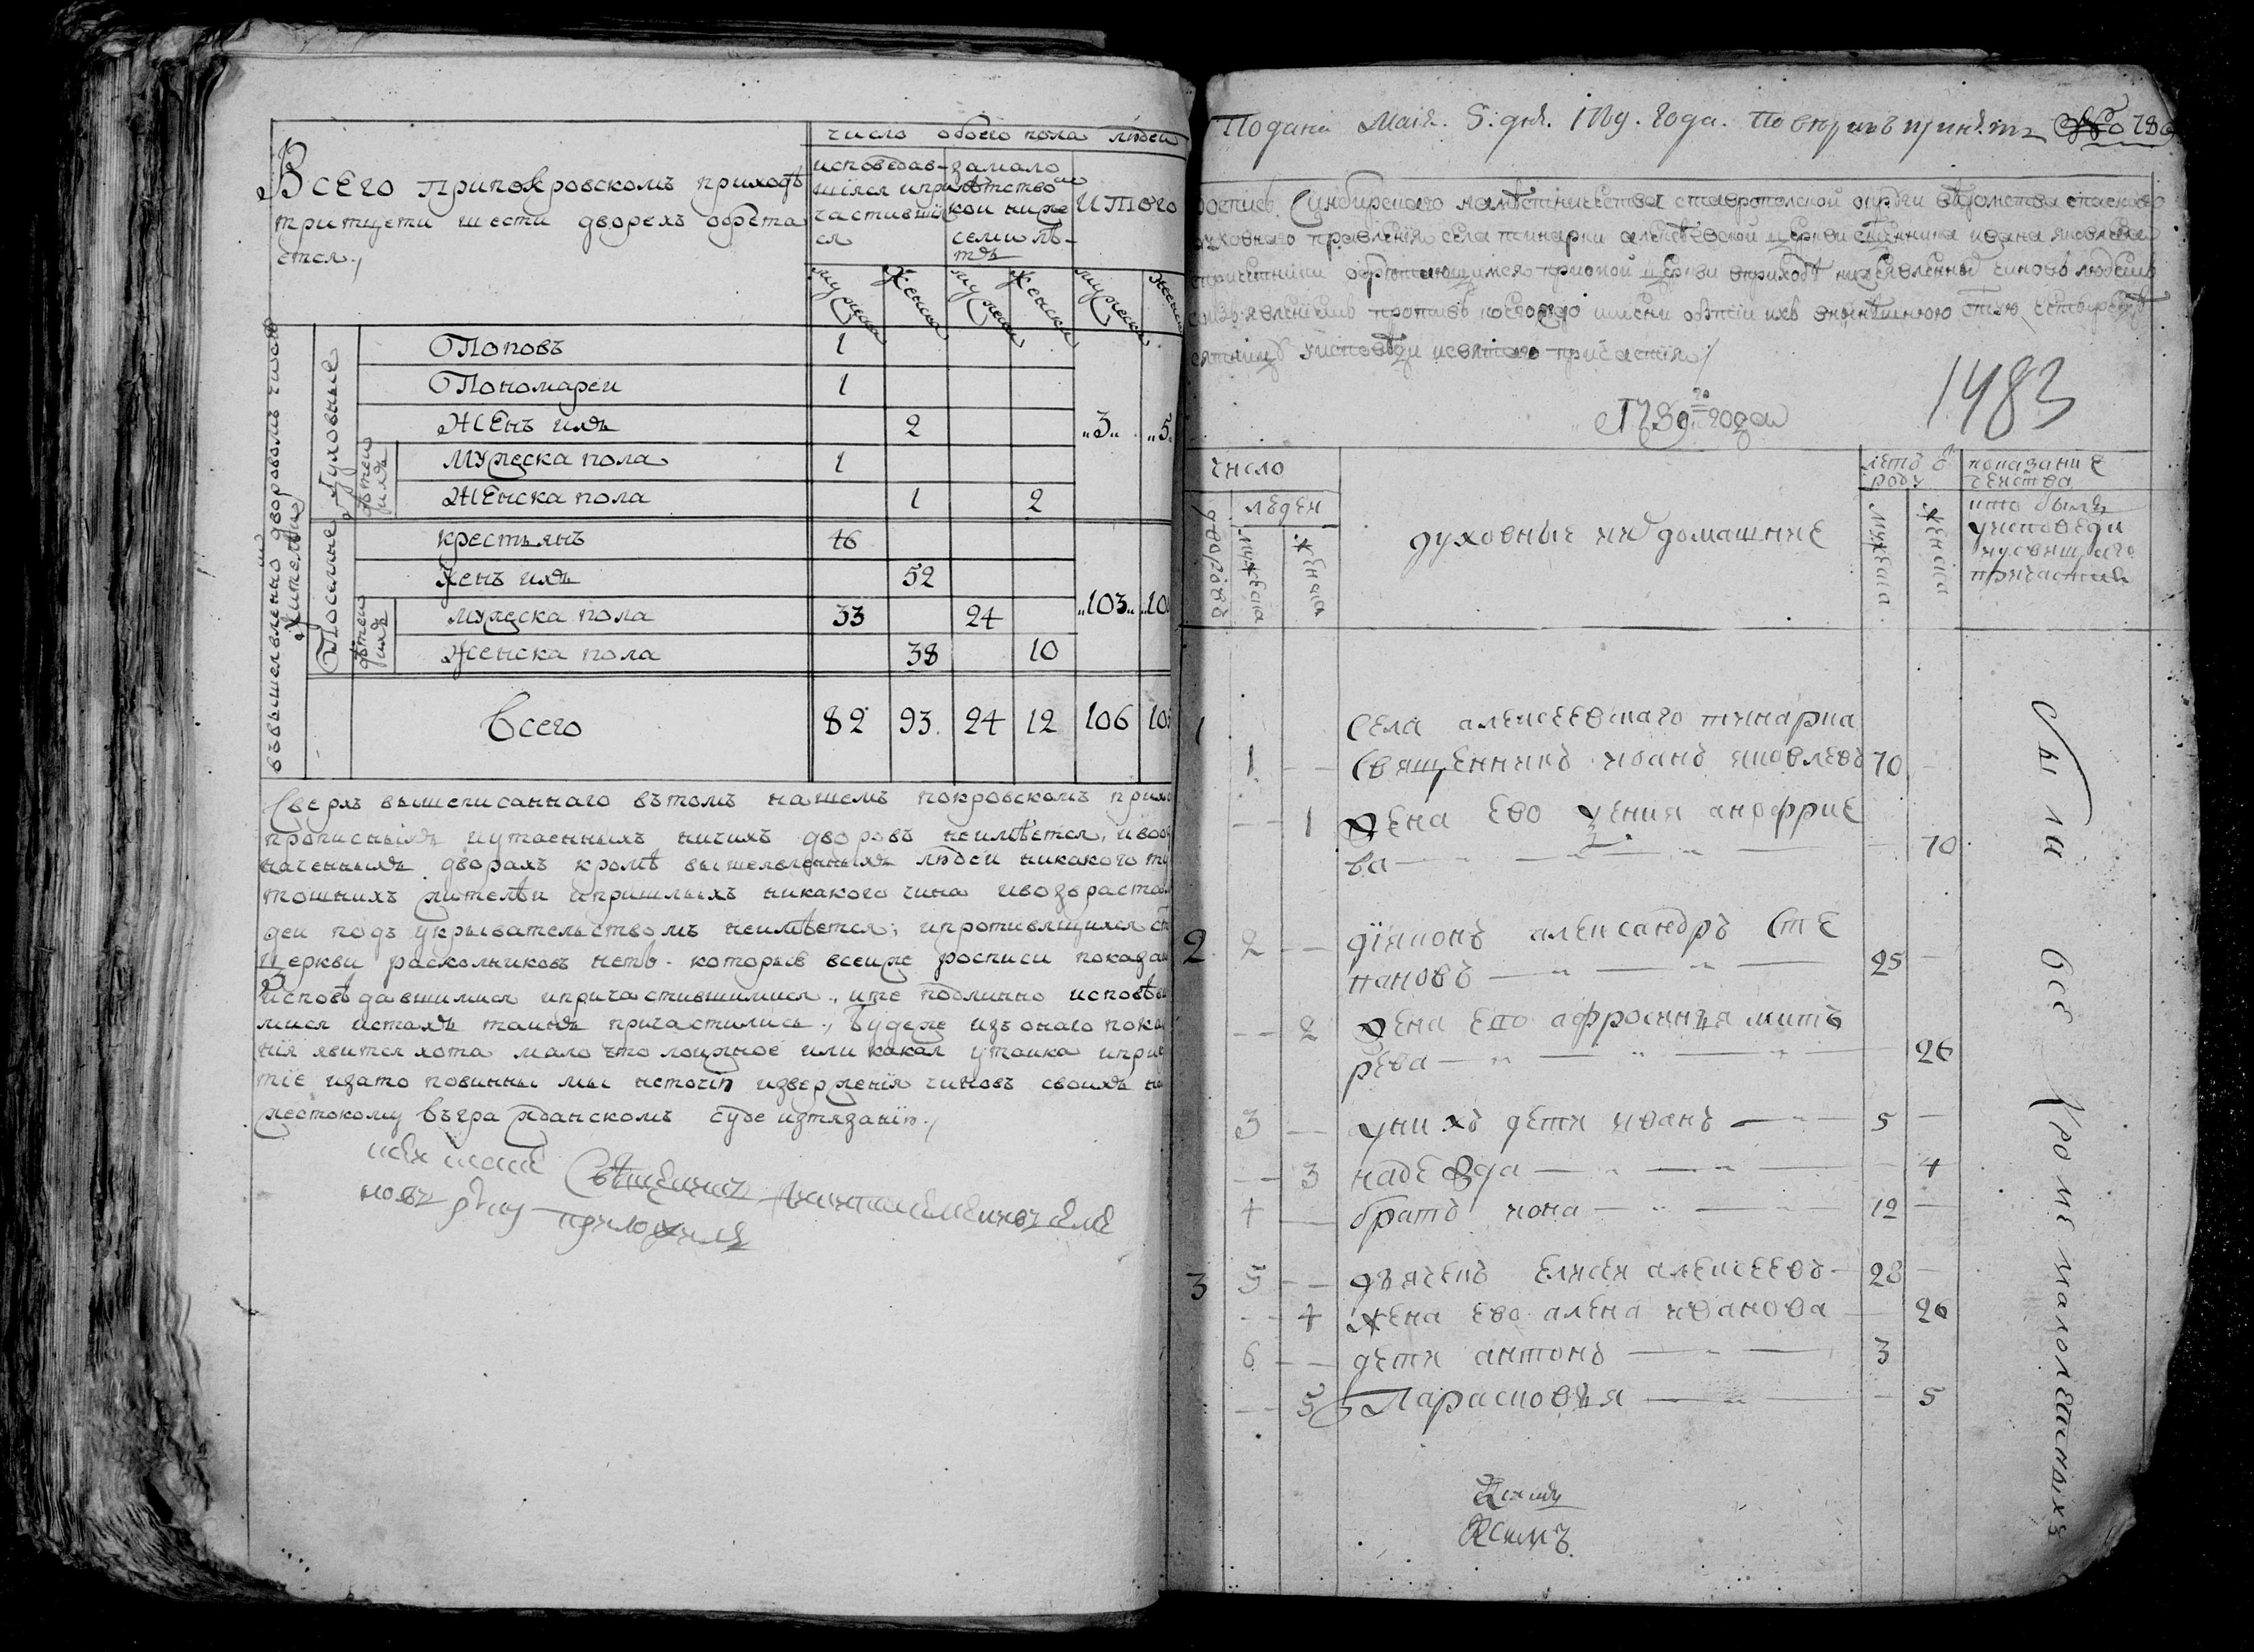 Всего припокровскомъ приходѣ
тритцети шести дворехъ обрета
ется
число обоего пола людеи
исповедав-
шïяся ипри
частившïе
ся
замало
лѣтство
кои ниже
семи лѣ-
тъ
итого
мужеска
женска
мужеска
женска
мужеска
женска
въвышеявленно дворовомъ числѣ
жителеи
Духовные
Поповъ 1
Пономареи 1
женъ ихъ 2 „3„ „5„
детеи ихъ
мужеска пола 1
женска пола 1 2
Посацкие
крестьянъ 46
женъ ихъ 52
детеи ихъ
мужеска пола 33 24 „103„ „10
женска пола 38 10
Всего 82 93 24 12 106 10
Сверхъ вышеписаннаго вътомъ нашемъ покровскомъ прихо
прописныхъ иутаенныхъ ничихъ дворовъ неимѣется, ивоо
наченныхъ дворахъ кромѣ вышеявленныхъ людеи никакого ту
тошнихъ жителѣи ипришлыхъ никакого чина ивозъраста
деи подъ укрывательствомъ неимѣется; ипротивящихся ст
церкви раскольниковъ нетъ которые всеиже росписи показа
исповѣдавшимися ипричастившимися, ите подлинно исповѣ
мися истахъ таинъ причастились, будеже изъ онаго пока
нïя явится хотя мало что ложное или какая утаика ипри
тïе изато повинны мы неточïю извержения чиновъ своихъ но
жестокому въгражданскомъ суде изтязанïю
руку приложилъ
Подана Маïя. 5. дня. 1789. Года.
роспись Синбирского намѣстничества ставропольской округи вѣдомства спаского
духовного правленïя села тинарки алексѣевской церкви сщенника ивана яковлева
спричетники обретающимся прионой церкви вприходѣ нижеявленныхъ чиновъ людемъ
сизъявленïемъ противъ коегождо имени о бытïи ихъ внынѣшнюю стую четыредѣ
сятницу уисповѣди исвятаго причастïя
1789го года
1483
число
дворовъ
людеи
мужеска
женска
духовные ихъ домашние
летъ от
роду
мужеска
женска
показание
чинства
кто былъ
уисповеди
иусвящщаго
причастия
Села алексеевскаго тинарка
1 1 священникъ иоанъ яковлевъ 70
1 жена ево ксения анофрие
ва 70
2 2 дïяконъ александръ сте
пановъ 25
2 жена ево афросинья мит
рева 26
3 унихъ дети иванъ 5
3 надежда 4
4 братъ иона 12
3 5 дьячекъ елисеи алексеевъ 28
4 жена ево алена иванова 26
6 дети антонъ 3
5 Парасковья 5
были все кроме малолетныхъ